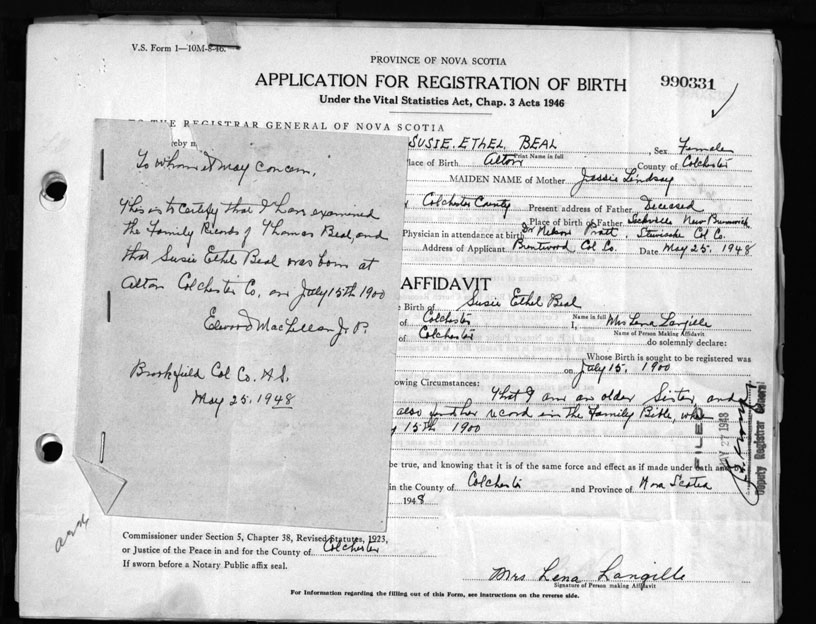 V.S. Form 1—10M-8-46.
PROVINCE OF NOVA SCOTIA
APPLICATION FOR REGISTRATION OF BIRTH
990331
Under the Vital Statistics Act, Chap. 3 Acts 1946
TO THE REGISTRAR GENERAL OF NOVA SCOTIA
SUSIE ETHEL BEAL Sex Female
Print Name in full
lace of Birth Alton County of Colchester
MAIDEN NAME of Mother Jessie Lindsay
Colchester County Present address of Father Deceased
Place of birth of Father Sackville New Brunswick
Physician in attendance at birth Dr Nelson Pratt Stewiacke Col Co.
Address of Applicant Brentwood Col Co. Date May 25. 1948
To whom it May Concern,
This is to certify that I have examined
the Family Records of Thomas Beal, and
that Susie Ethel Beal was born at
Alton Colchester Co, on July 15th 1900
Elwood MacLellan J.P.
Brookfield Col Co. N.S.
May 25. 1948
AFFIDAVIT
e Birth of Susie Ethel Beal
Name in full
of Colchester I, Mrs Lena Langille
Name of Person Making Affidavit
of Colchester do solemnly declare:
Whose Birth is sought to be registered was
on July 15. 1900
owing Circumstances: That I am an older Sister and
also find her record in the Family Bible, when
y 15th 1900
FILED
MAY 27 1948
Deputy Registrar General
be true, and knowing that it is of the same force and effect as if made under oath and
in the County of Colchester and Province of Nova Scotia
1948
Commissioner under Section 5, Chapter 38, Revised Statutes, 1923,
or Justice of the Peace in and for the County of Colchester
If sworn before a Notary Public affix seal.
Mrs Lena Langille
Signature of Person making Affidavit
For Information regarding the filling out of this Form, see instructions on the reverse side.